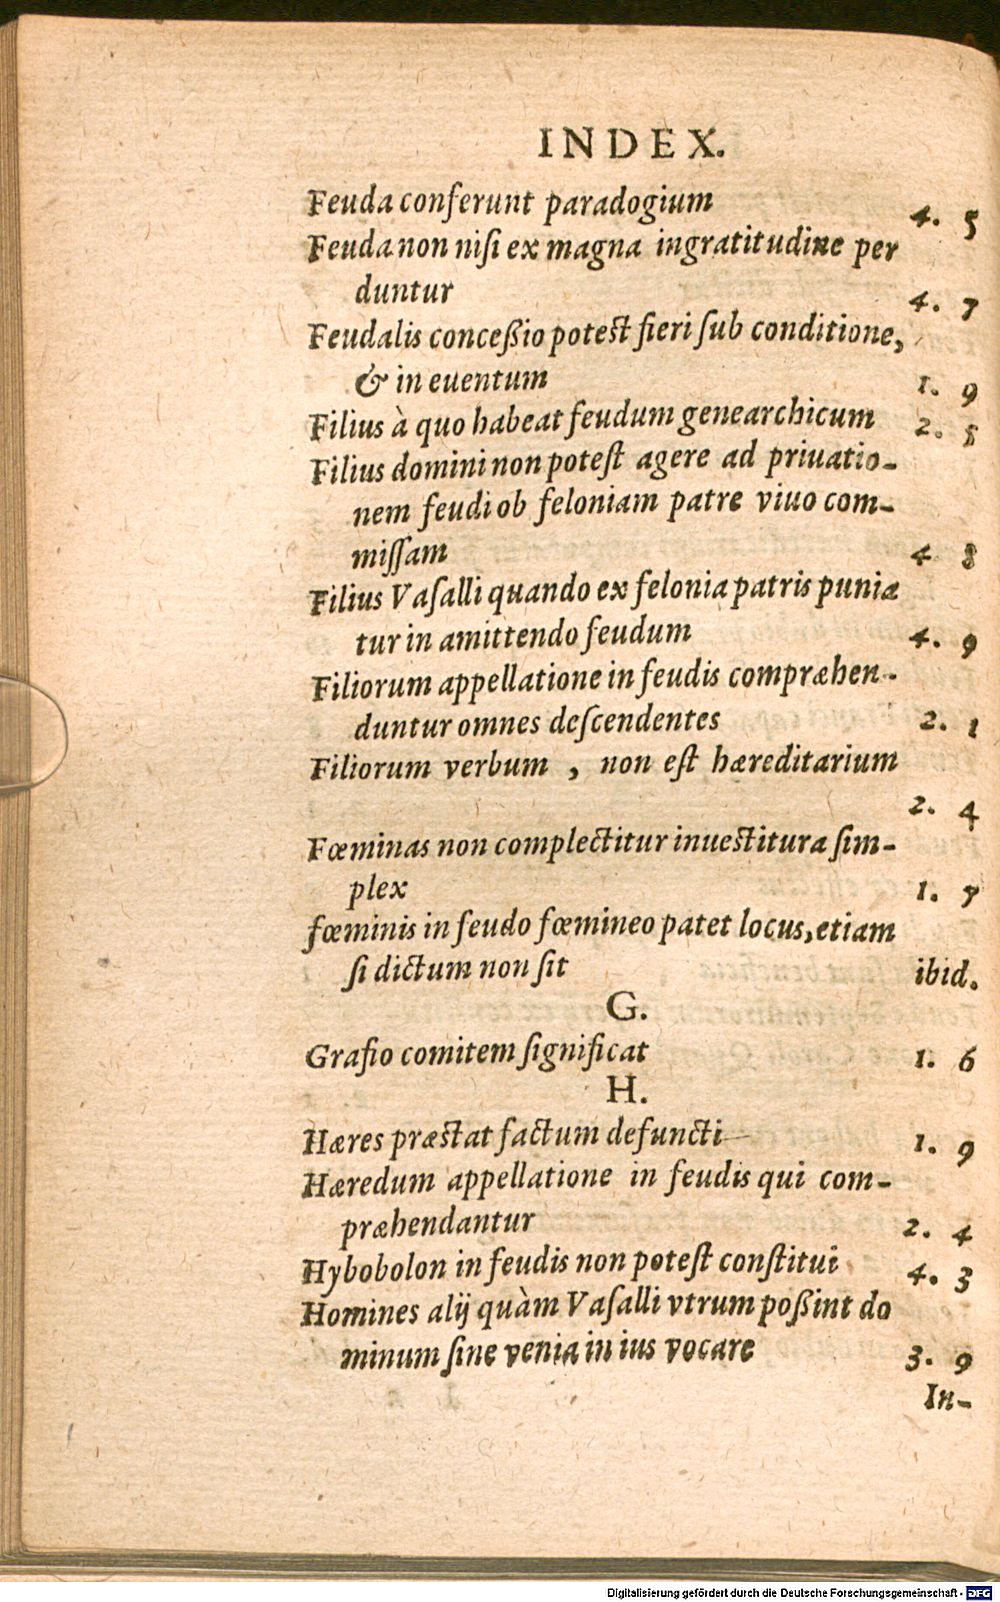 INDEX.
Feuda conferunt paradogium 4. 5
Feuda non niſi ex magna ingratitudine per
duntur 4. 7
Feudalis conceßio potest fieri ſub conditione,
& in euentum 1. 9
Filius à quo habeat feudum genearchicum 2. 5
Filius domini non poteſt agere ad priuatio-
nem feudi ob feloniam patre viuo com-
miſſam 4 8
Filius Vaſalli quando ex felonia patris punia
tur in amittendo feudum 4. 9
Filiorum appellatione in feudis compræhen-
duntur omnes deſcendentes 2. 1
Filiorum verbum , non eſt hæreditarium
2. 4
Fœminas non complectitur inuestitura ſim-
plex 1. 7
fœminis in feudo fœmineo patet locus, etiam
ſi dictum non ſit ibid.
G.
Grafio comitem ſignificat 1. 6
H.
Hæres præstat factum defuncti 1. 9
Hæredum appellatione in feudis qui com-
præhendantur 2. 4
Hybobolon in feudis non poteſt conſtitui 4. 3
Homines alij quàm Vaſalli vtrum poßint do
minum ſine venia in ius vocare 3. 9
In-
Digitalisierung gefördert durch die Deutsche Forschungsgemeinschaft - DFG